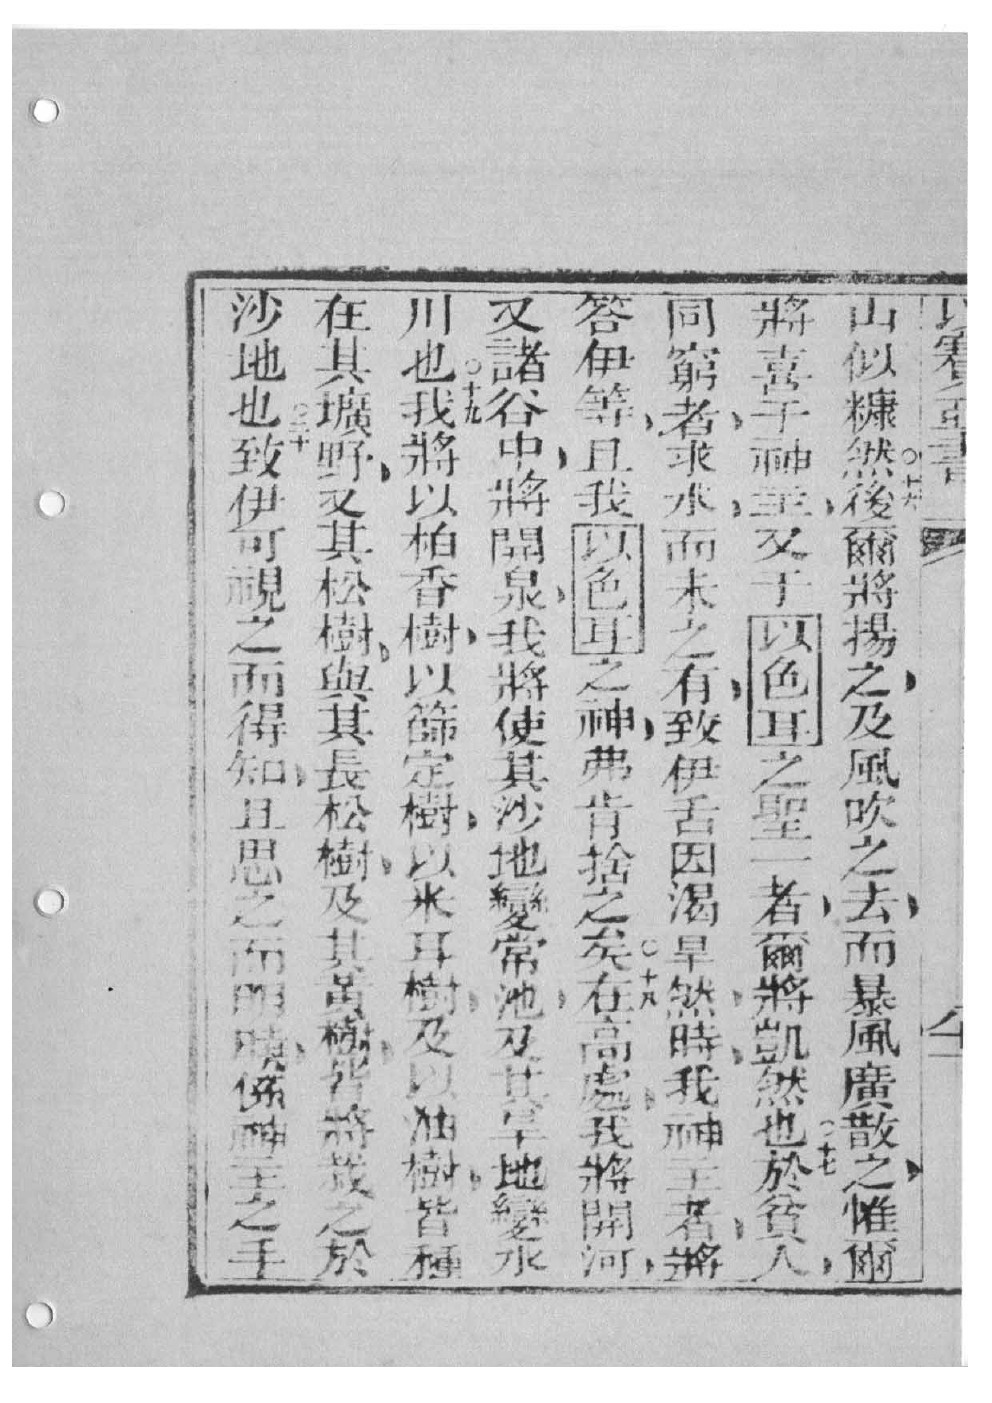 以賽亞書
山似糠然○十六後爾將揚之及風吹之去而暴風廣散之惟爾
將喜于神主又于以色耳之聖一者爾將凱然也○十七於貧人
同窮者求水而未之有致伊舌因渴旱然時我神主者將
答伊等且我以色耳之神弗肯捨之矣○十八在高處我將開河
又諸谷中將開泉我將使其沙地變常池及其旱地變水
川也○十九我將以柏香樹以篩定樹以米耳樹及以油樹皆種
在其壙野又其松樹與其長松樹及其黃樹皆將栽之於
沙地也○二十致伊可視之而得知且思之而明曉係神主之手